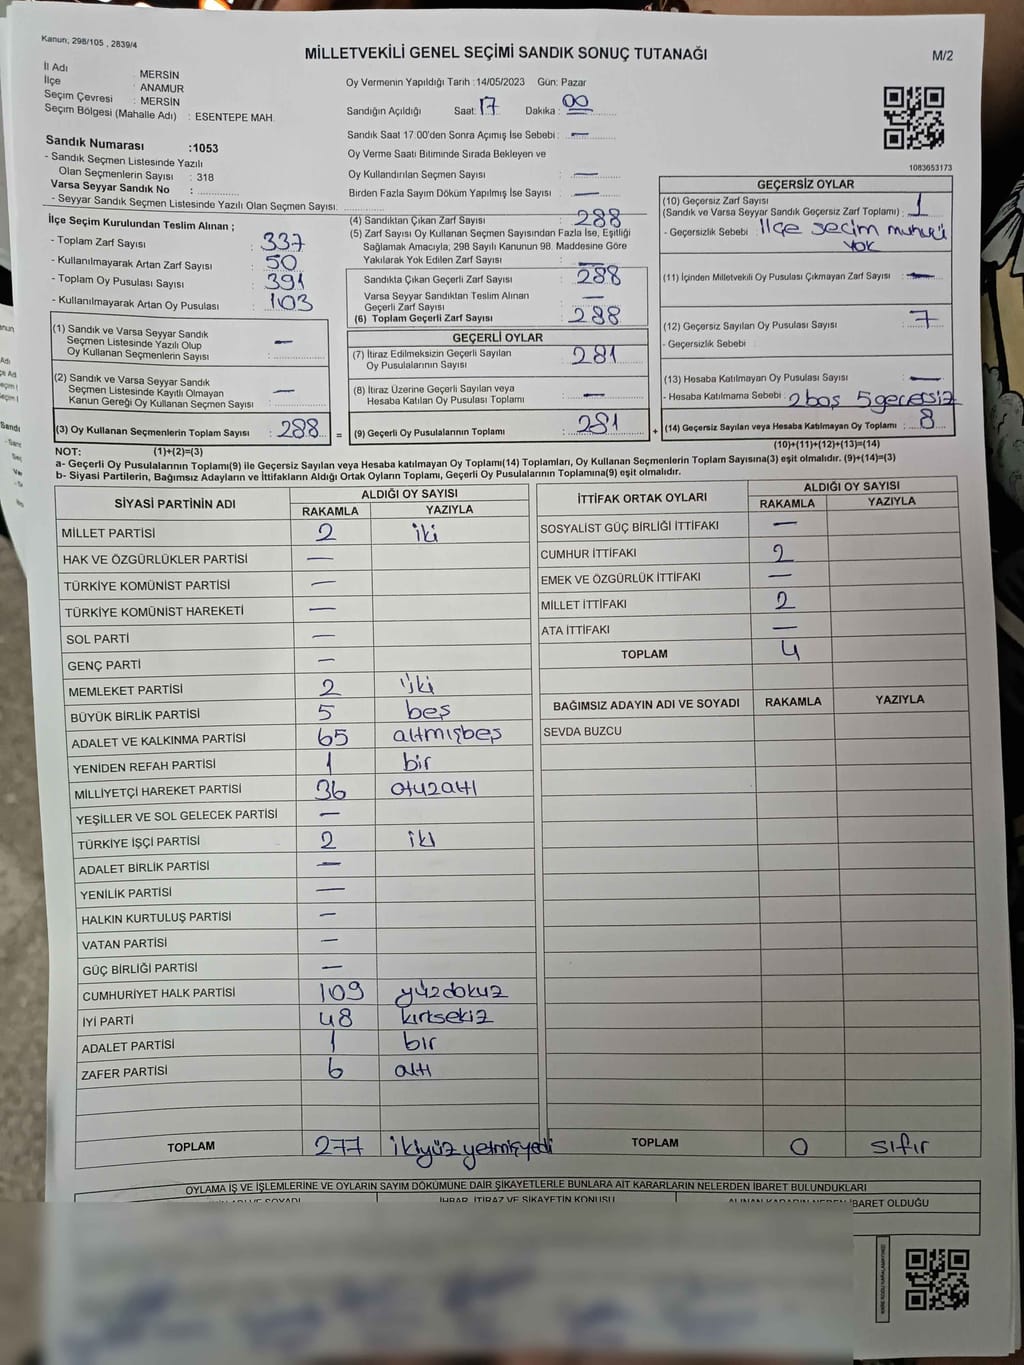 Kanun; 298/105 , 2839/4
MİLLETVEKİLİ GENEL SEÇİMİ SANDIK SONUÇ TUTANAĞI
M/2
İl Adı : MERSİN
İlçe : ANAMUR
Seçim Çevresi : MERSİN
Seçim Bölgesi (Mahalle Adı) : ESENTEPE MAH.
Oy Vermenin Yapıldığı Tarih :14/05/2023 Gün: Pazar
Sandığın Açıldığı Saat: 17 Dakika : 00
Sandık Saat 17:00'den Sonra Açımış İse Sebebi : —
Oy Verme Saati Bitiminde Sırada Bekleyen ve
Oy Kullandırılan Seçmen Sayısı : —
Birden Fazla Sayım Döküm Yapılmış İse Sayısı : —
1083653173
Sandık Numarası :1053
- Sandık Seçmen Listesinde Yazılı
Olan Seçmenlerin Sayısı : 318
Varsa Seyyar Sandık No :
- Seyyar Sandık Seçmen Listesinde Yazılı Olan Seçmen Sayısı:
İlçe Seçim Kurulundan Teslim Alınan ;
- Toplam Zarf Sayısı : 337
- Kullanılmayarak Artan Zarf Sayısı : 50
- Toplam Oy Pusulası Sayısı : 391
- Kullanılmayarak Artan Oy Pusulası : 103
(1) Sandık ve Varsa Seyyar Sandık
Seçmen Listesinde Yazılı Olup
Oy Kullanan Seçmenlerin Sayısı : —
(2) Sandık ve Varsa Seyyar Sandık
Seçmen Listesinde Kayıtlı Olmayan
Kanun Gereği Oy Kullanan Seçmen Sayısı : —
(3) Oy Kullanan Seçmenlerin Toplam Sayısı : 288 =
(4) Sandıktan Çıkan Zarf Sayısı : 288
(5) Zarf Sayısı Oy Kullanan Seçmen Sayısından Fazla İse, Eşitliği
Sağlamak Amacıyla; 298 Sayılı Kanunun 98. Maddesine Göre
Yakılarak Yok Edilen Zarf Sayısı : —
Sandıkta Çıkan Geçerli Zarf Sayısı : 288
Varsa Seyyar Sandıktan Teslim Alınan
Geçerli Zarf Sayısı : —
(6) Toplam Geçerli Zarf Sayısı : 288
GEÇERLİ OYLAR
(7) İtiraz Edilmeksizin Geçerli Sayılan
Oy Pusulalarının Sayısı : 281
(8) İtiraz Üzerine Geçerli Sayılan veya
Hesaba Katılan Oy Pusulası Toplamı : —
(9) Geçerli Oy Pusulalarının Toplamı : 281 +
GEÇERSİZ OYLAR
(10) Geçersiz Zarf Sayısı
(Sandık ve Varsa Seyyar Sandık Geçersiz Zarf Toplamı) : 1
- Geçersizlik Sebebi : ilçe seçim mührü
yok
(11) İçinden Milletvekili Oy Pusulası Çıkmayan Zarf Sayısı : —
(12) Geçersiz Sayılan Oy Pusulası Sayısı : 7
- Geçersizlik Sebebi :
(13) Hesaba Katılmayan Oy Pusulası Sayısı : —
- Hesaba Katılmama Sebebi : 2 boş 5 geçersiz
(14) Geçersiz Sayılan veya Hesaba Katılmayan Oy Pusulası Toplamı : 8
NOT: (1)+(2)=(3)
(10)+(11)+(12)+(13)=(14)
a- Geçerli Oy Pusulalarının Toplamı(9) ile Geçersiz Sayılan veya Hesaba katılmayan Oy Toplamı(14) Toplamları, Oy Kullanan Seçmenlerin Toplam Sayısına(3) eşit olmalıdır. (9)+(14)=(3)
b- Siyasi Partilerin, Bağımsız Adayların ve İttifakların Aldığı Ortak Oyların Toplamı, Geçerli Oy Pusulalarının Toplamına(9) eşit olmalıdır.
SİYASİ PARTİNİN ADI
ALDIĞI OY SAYISI
RAKAMLA YAZIYLA
MİLLET PARTİSİ 2 iki
HAK VE ÖZGÜRLÜKLER PARTİSİ —
TÜRKİYE KOMÜNİST PARTİSİ —
TÜRKİYE KOMÜNİST HAREKETİ —
SOL PARTİ —
GENÇ PARTİ —
MEMLEKET PARTİSİ 2 iki
BÜYÜK BİRLİK PARTİSİ 5 beş
ADALET VE KALKINMA PARTİSİ 65 altmışbeş
YENİDEN REFAH PARTİSİ 1 bir
MİLLİYETÇİ HAREKET PARTİSİ 36 otuzaltı
YEŞİLLER VE SOL GELECEK PARTİSİ —
TÜRKİYE İŞÇİ PARTİSİ 2 iki
ADALET BİRLİK PARTİSİ —
YENİLİK PARTİSİ —
HALKIN KURTULUŞ PARTİSİ —
VATAN PARTİSİ —
GÜÇ BİRLİĞİ PARTİSİ —
CUMHURİYET HALK PARTİSİ 109 yüzdokuz
İYİ PARTİ 48 kırksekiz
ADALET PARTİSİ 1 bir
ZAFER PARTİSİ 6 altı
TOPLAM 277 ikiyüzyetmişyedi
İTTİFAK ORTAK OYLARI
ALDIĞI OY SAYISI
RAKAMLA YAZIYLA
SOSYALİST GÜÇ BİRLİĞİ İTTİFAKI —
CUMHUR İTTİFAKI 2
EMEK VE ÖZGÜRLÜK İTTİFAKI —
MİLLET İTTİFAKI 2
ATA İTTİFAKI —
TOPLAM 4
BAĞIMSIZ ADAYIN ADI VE SOYADI RAKAMLA YAZIYLA
SEVDA BUZCU
TOPLAM 0 sıfır
OYLAMA İŞ VE İŞLEMLERİNE VE OYLARIN SAYIM DÖKÜMÜNE DAİR ŞİKAYETLERLE BUNLARA AİT KARARLARIN NELERDEN İBARET BULUNDUKLARI
İHBAR, İTİRAZ VE ŞİKAYETİN KONUSU
İBARET OLDUĞU